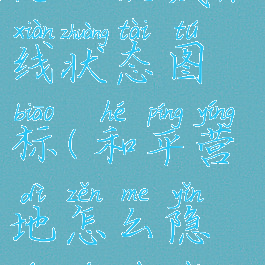 xiàn zhuàng tài tú
线状态图
biāo hé píng yíng
标(和平营
dì zěn me yǐn
地怎么隐